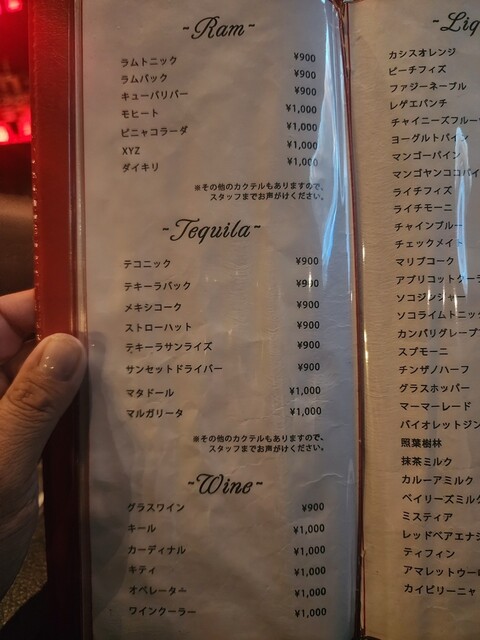 -Ram-
ラムトニック ¥900
ラムバック ¥900
キューバリバー ¥900
モヒート ¥1,000
ピニャコラーダ ¥1,000
XYZ ¥1,000
ダイキリ ¥1,000
※その他のカクテルもありますので、
スタッフまでお声がけください。
-Tequila-
テコニック ¥900
テキーラバック ¥900
メキシコーク ¥900
ストローハット ¥900
テキーラサンライズ ¥900
サンセットドライバー ¥900
マタドール ¥1,000
マルガリータ ¥1,000
※その他のカクテルもありますので、
スタッフまでお声がけください。
-Wine-
グラスワイン ¥900
キール ¥1,000
カーディナル ¥1,000
キティ ¥1,000
オペレーター ¥1,000
ワインクーラー ¥1,000
-Liq
カシスオレンジ
ピーチフィズ
ファジーネーブル
レゲエパンチ
チャイニーズフルー
ヨーグルトパイン
マンゴーパイン
マンゴヤンココパイ
ライチフィズ
ライチモーニ
チャインブルー
チェックメイト
マリブコーク
アプリコットクーラ
ソコジンジャー
ソコライムトニック
カンパリグレープフ
スプモーニ
チンザノハーフ
グラスホッパー
マーマーレード
バイオレットジン
照葉樹林
抹茶ミルク
カルーアミルク
ベイリーズミルク
ミスティア
レッドベアエナジ
ティフィン
アマレットウー
カイピリーニャ